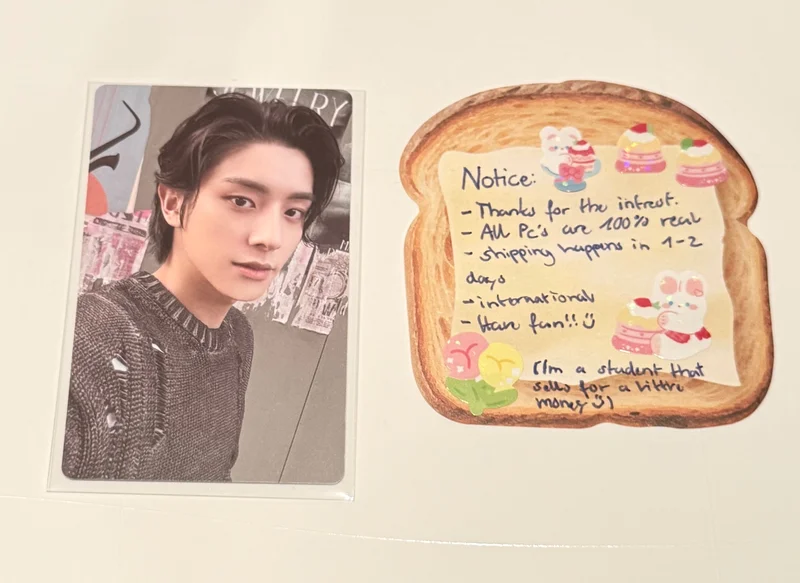 JEWELRY
Notice:
- Thanks for the intrest.
- All Pc's are 100% real
- shipping happens in 1-2
days
- international
- Have fun!! :)
(I'm a student that
sells for a little
money :))